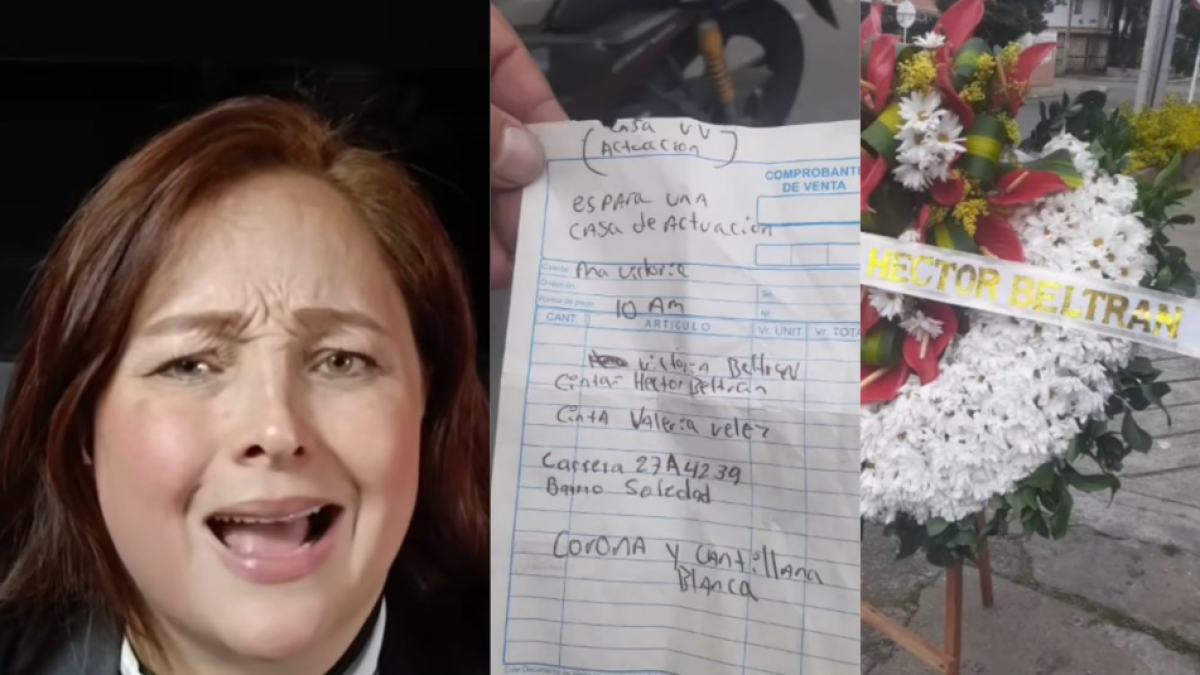 (Casa VV
Actuacion)
es para una
casa de Actuación
COMPROBANTE
DE VENTA
Ana victoria
Forma de pago
10 Am
CANT.
ARTICULO
Vr. UNIT.
Vr. TOTA
victoria Beltran
Cinta- Hector Beltran
Cinta Valeria velez
Carrera 27A 4239
Barrio Soledad
Corona y cantillana
Blanca
HECTOR BELTRAN